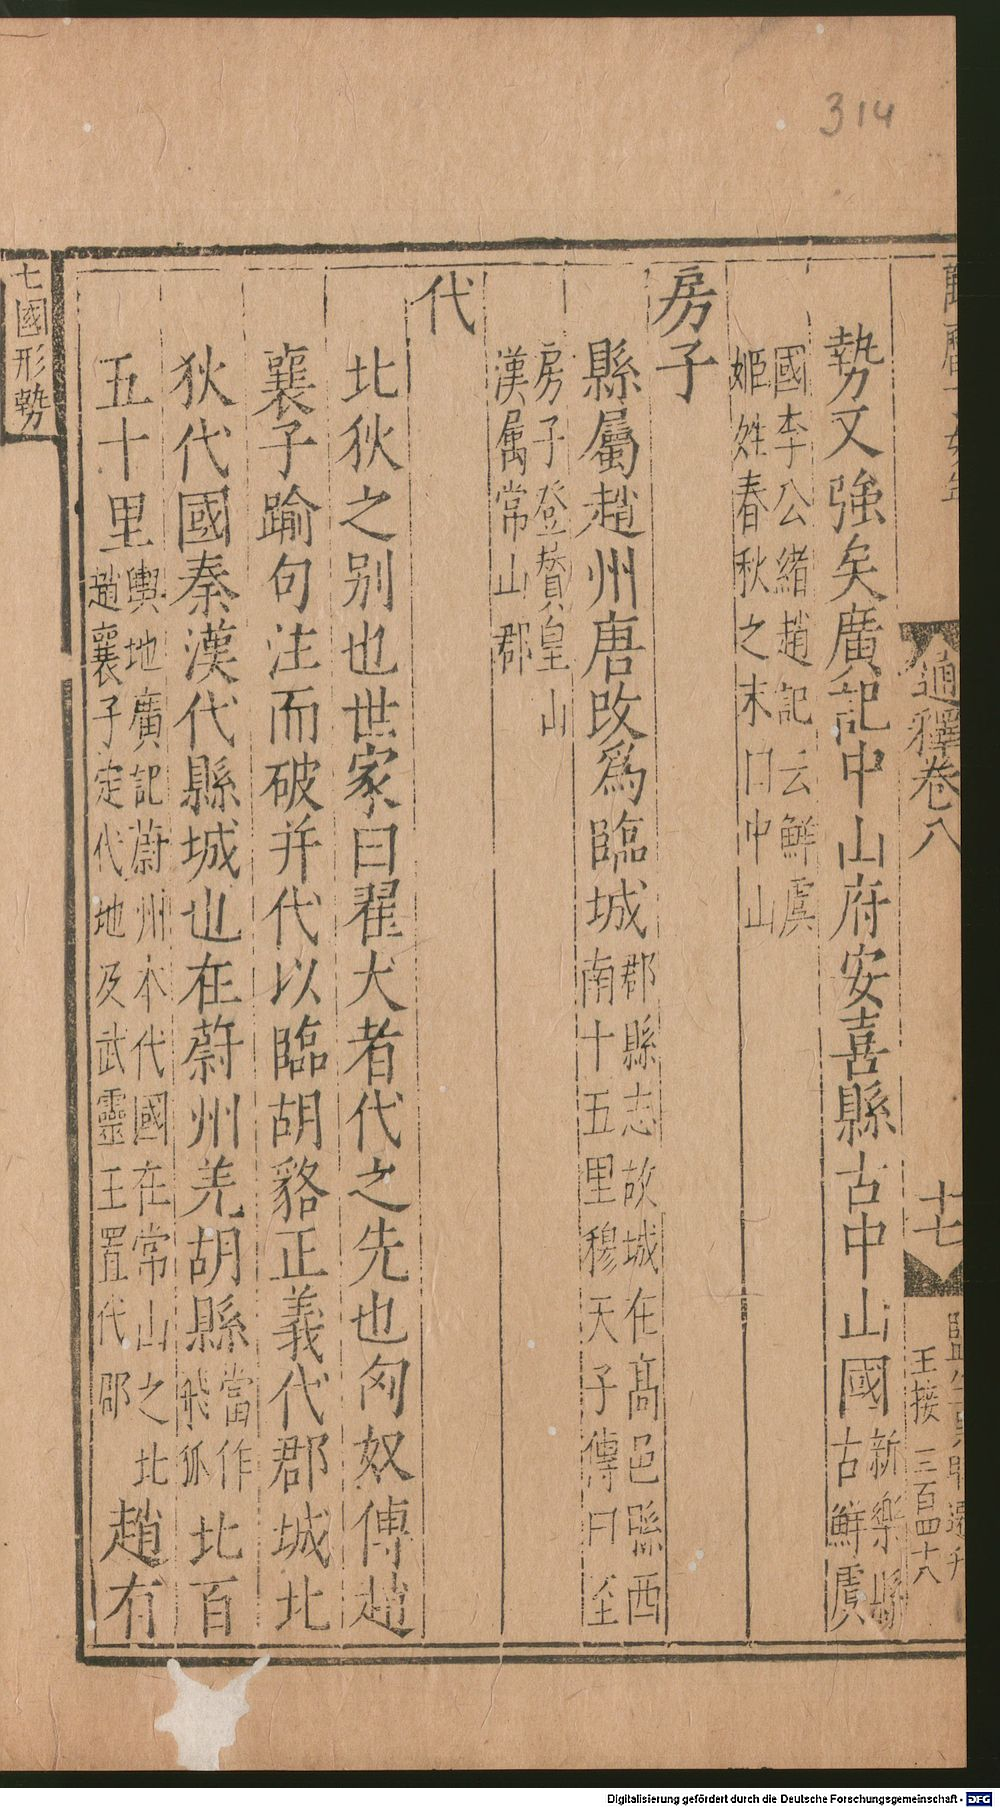 314
通釋卷八
十七
王接 三百四十八
勢又強矣廣記中山府安喜縣古中山國新樂縣古鮮虞
國李公緒趙記云鮮虞姬姓春秋之末曰中山
房子
縣屬趙州唐改爲臨城郡縣志故城在高邑縣西南十五里穆天子傳曰至
房子登賛皇山漢属常山郡
代
北狄之别也世家曰翟犬者代之先也匈奴傳趙
襄子踰句注而破并代以臨胡貉正義代郡城北
狄代國秦漢代縣城也在蔚州羌胡縣當作飛狐北百
五十里輿地廣記蔚州本代國在常山之北趙襄子定代地及武靈王置代郡趙有
七國形勢
Digitalisierung gefördert durch die Deutsche Forschungsgemeinschaft - DFG